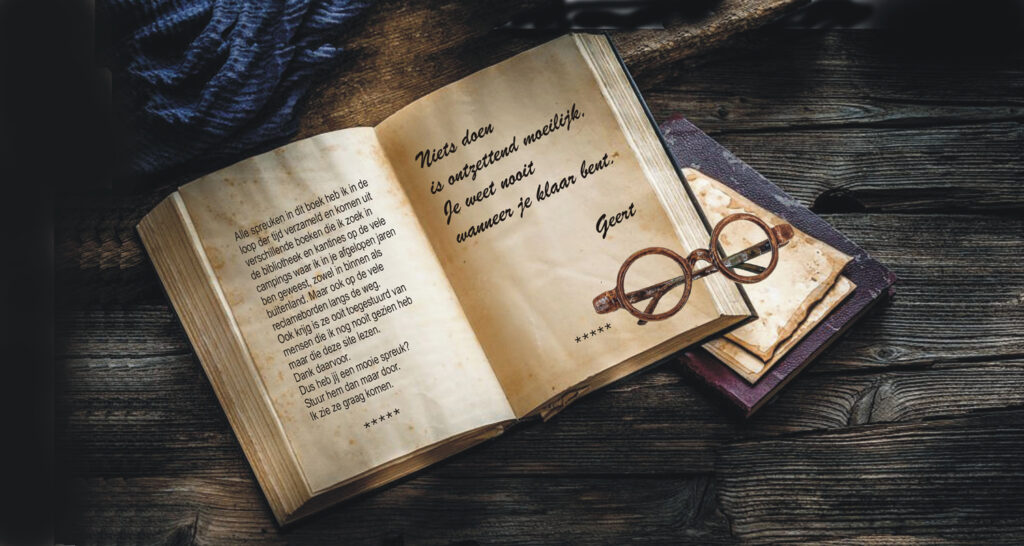 Alle spreuken in dit boek heb ik in de
loop der tijd verzameld en komen uit
verschillende boeken die ik zoek in
de bibliotheek en kantines op de vele
campings waar ik in je afgelopen jaren
ben geweest, zowel in binnen als
buitenland. Maar ook op de vele
reclameborden langs de weg.
Ook knijg is ze ooit toegestuurd van
mensen die ik nog nooit gezien heb
maar die deze site lezen.
Dank daarvoor.
Dus heb jij een mooie spreuk?
Stuur hem dan maar door.
Ik zie ze graag komen.
*****
Niets doen
is ontzettend moeilijk.
Je weet nooit
wanneer je klaar bent.
Geert
*****